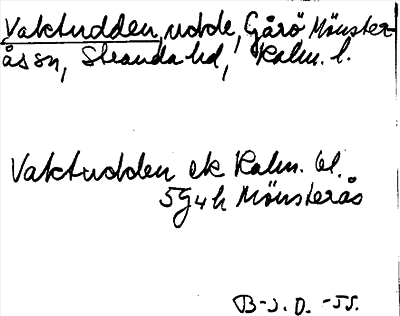 Vaktudden, udde, Gårö Mönster-
ås sn, Stranda hd, Kalm. l.
Vaktudden ek Kalm. bl.
5G4h Mönsterås
B-J. D. -55.